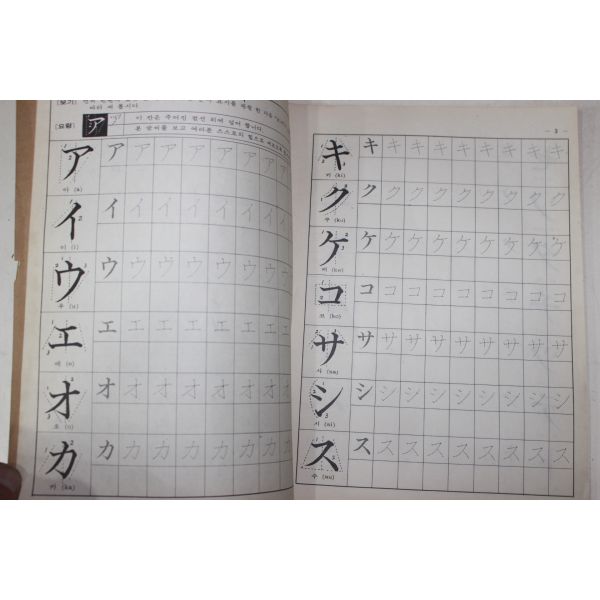 (요령) ア ア 이 칸은 주어진 점선 위에 덮어 씁니다.
ア ア ア ア ア ア ア ア
아 (a)
イ イ イ イ イ イ イ イ
이 (i)
ウ ウ ウ ウ ウ ウ ウ
우 (u)
エ エ エ エ エ エ エ エ
에 (e)
オ オ オ オ オ オ オ オ
오 (o)
カ カ カ カ カ カ カ カ
카 (ka)
— 3 —
キ キ キ キ キ キ キ キ キ キ
키 (ki)
ク ク ク ク ク ク ク ク ク ク
쿠 (ku)
ケ ケ ケ ケ ケ ケ ケ ケ ケ ケ
케 (ke)
コ コ コ コ コ コ コ コ コ コ
코 (ko)
サ サ サ サ サ サ サ サ サ サ
사 (sa)
シ シ シ シ シ シ シ シ シ シ
시 (si)
ス ス ス ス ス ス ス ス ス ス
수 (su)